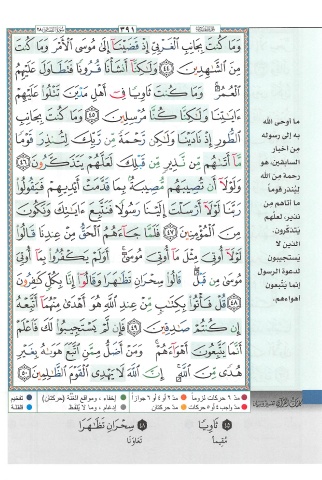 ٣٩١
وَمَا كُنتَ بِجَانِبِ ٱلْغَرْبِيِّ إِذْ قَضَيْنَآ إِلَىٰ مُوسَى ٱلْأَمْرَ وَمَا كُنتَ
مِنَ ٱلشَّـٰهِدِينَ ٤٤ وَلَـٰكِنَّآ أَنشَأْنَا قُرُونًا فَتَطَاوَلَ عَلَيْهِمُ
ٱلْعُمُرُ ۚ وَمَا كُنتَ ثَاوِيًا فِىٓ أَهْلِ مَدْيَنَ تَتْلُوا۟ عَلَيْهِمْ
ءَايَـٰتِنَا وَلَـٰكِنَّا كُنَّا مُرْسِلِينَ ٤٥ وَمَا كُنتَ بِجَانِبِ
ٱلطُّورِ إِذْ نَادَيْنَا وَلَـٰكِن رَّحْمَةً مِّن رَّبِّكَ لِتُنذِرَ قَوْمًا
مَّآ أَتَىٰهُم مِّن نَّذِيرٍ مِّن قَبْلِكَ لَعَلَّهُمْ يَتَذَكَّرُونَ ٤٦
وَلَوْلَآ أَن تُصِيبَهُم مُّصِيبَةٌۢ بِمَا قَدَّمَتْ أَيْدِيهِمْ فَيَقُولُوا۟
رَبَّنَا لَوْلَآ أَرْسَلْتَ إِلَيْنَا رَسُولًا فَنَتَّبِعَ ءَايَـٰتِكَ وَنَكُونَ
مِنَ ٱلْمُؤْمِنِينَ ٤٧ فَلَمَّا جَآءَهُمُ ٱلْحَقُّ مِنْ عِندِنَا قَالُوا۟
لَوْلَآ أُوتِىَ مِثْلَ مَآ أُوتِىَ مُوسَىٰٓ ۚ أَوَلَمْ يَكْفُرُوا۟ بِمَآ أُوتِىَ
مُوسَىٰ مِن قَبْلُ ۖ قَالُوا۟ سِحْرَانِ تَظَـٰهَرَا وَقَالُوٓا۟ إِنَّا بِكُلٍّ كَـٰفِرُونَ
٤٨ قُلْ فَأْتُوا۟ بِكِتَـٰبٍ مِّنْ عِندِ ٱللَّهِ هُوَ أَهْدَىٰ مِنْهُمَآ أَتَّبِعْهُ
إِن كُنتُمْ صَـٰدِقِينَ ٤٩ فَإِن لَّمْ يَسْتَجِيبُوا۟ لَكَ فَٱعْلَمْ
أَنَّمَا يَتَّبِعُونَ أَهْوَآءَهُمْ ۚ وَمَنْ أَضَلُّ مِمَّنِ ٱتَّبَعَ هَوَىٰهُ بِغَيْرِ
هُدًى مِّنَ ٱللَّهِ ۚ إِنَّ ٱللَّهَ لَا يَهْدِى ٱلْقَوْمَ ٱلظَّـٰلِمِينَ ٥٠
ما أوحى الله
به إلى رسوله
من أخبار
السابقين، هو
رحمة من الله
ليُنذر قوماً
ما أتاهم من
نذير، لعلّهم
يتذكّرون.
الذين لا
يستجيبون
لدعوة الرسول
إنما يتّبعون
أهواءهم.
مدّ ٦ حركات لزوماً مدّ ٢ أو ٤ أو ٦ جوازاً إخفاء، ومواقع الغنّة (حركتان) تفخيم
مدّ واجب ٤ أو ٥ حركات مدّ حركتان إدغام، وما لا يُلفظ قلقلة
٤٥ ثَاوِيًا ٤٨ سِحْرَانِ تَظَـٰهَرَا
مُقيماً تَعَاوَنَا